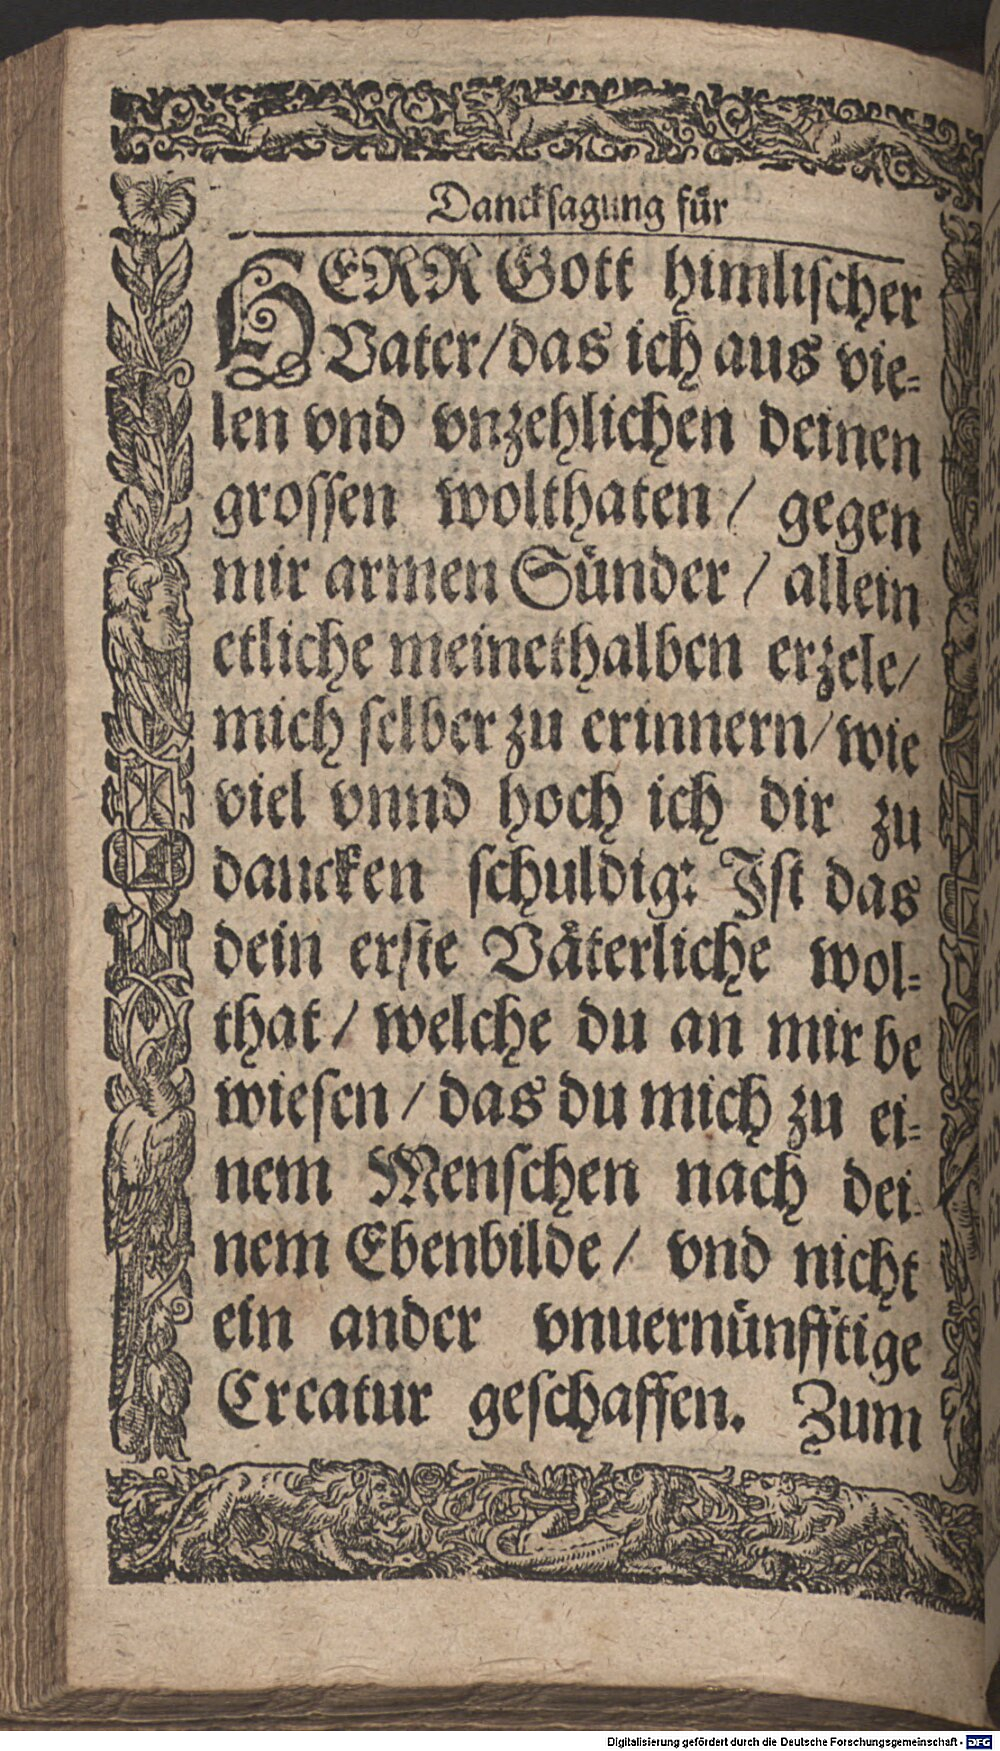 Dancksagung für
HERR Gott himlischer
Vater/das ich aus vie=
len vnd vnzehlichen deinen
grossen wolthaten / gegen
mir armen Sünder / allein
etliche meinethalben erzele/
mich selber zu erinnern/wie
viel vnnd hoch ich dir zu
dancken schuldig: Ist das
dein erste Väterliche wol=
that / welche du an mir be
wiesen / das du mich zu ei=
nem Menschen nach dei=
nem Ebenbilde / vnd nicht
ein ander vnuernünfftige
Creatur geschaffen. Zum
Digitalisierung gefördert durch die Deutsche Forschungsgemeinschaft - DFG